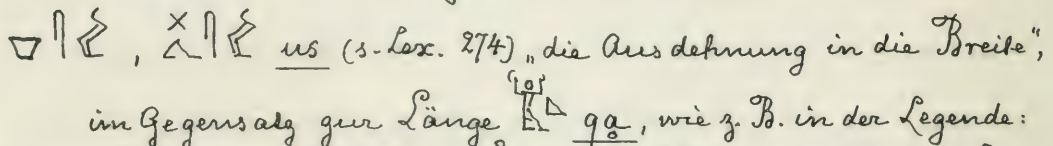 , us (s. Lex. 274) „die Ausdehnung in die Breite",
im Gegensatz zur Länge qa̭, wie z. B. in der Legende: